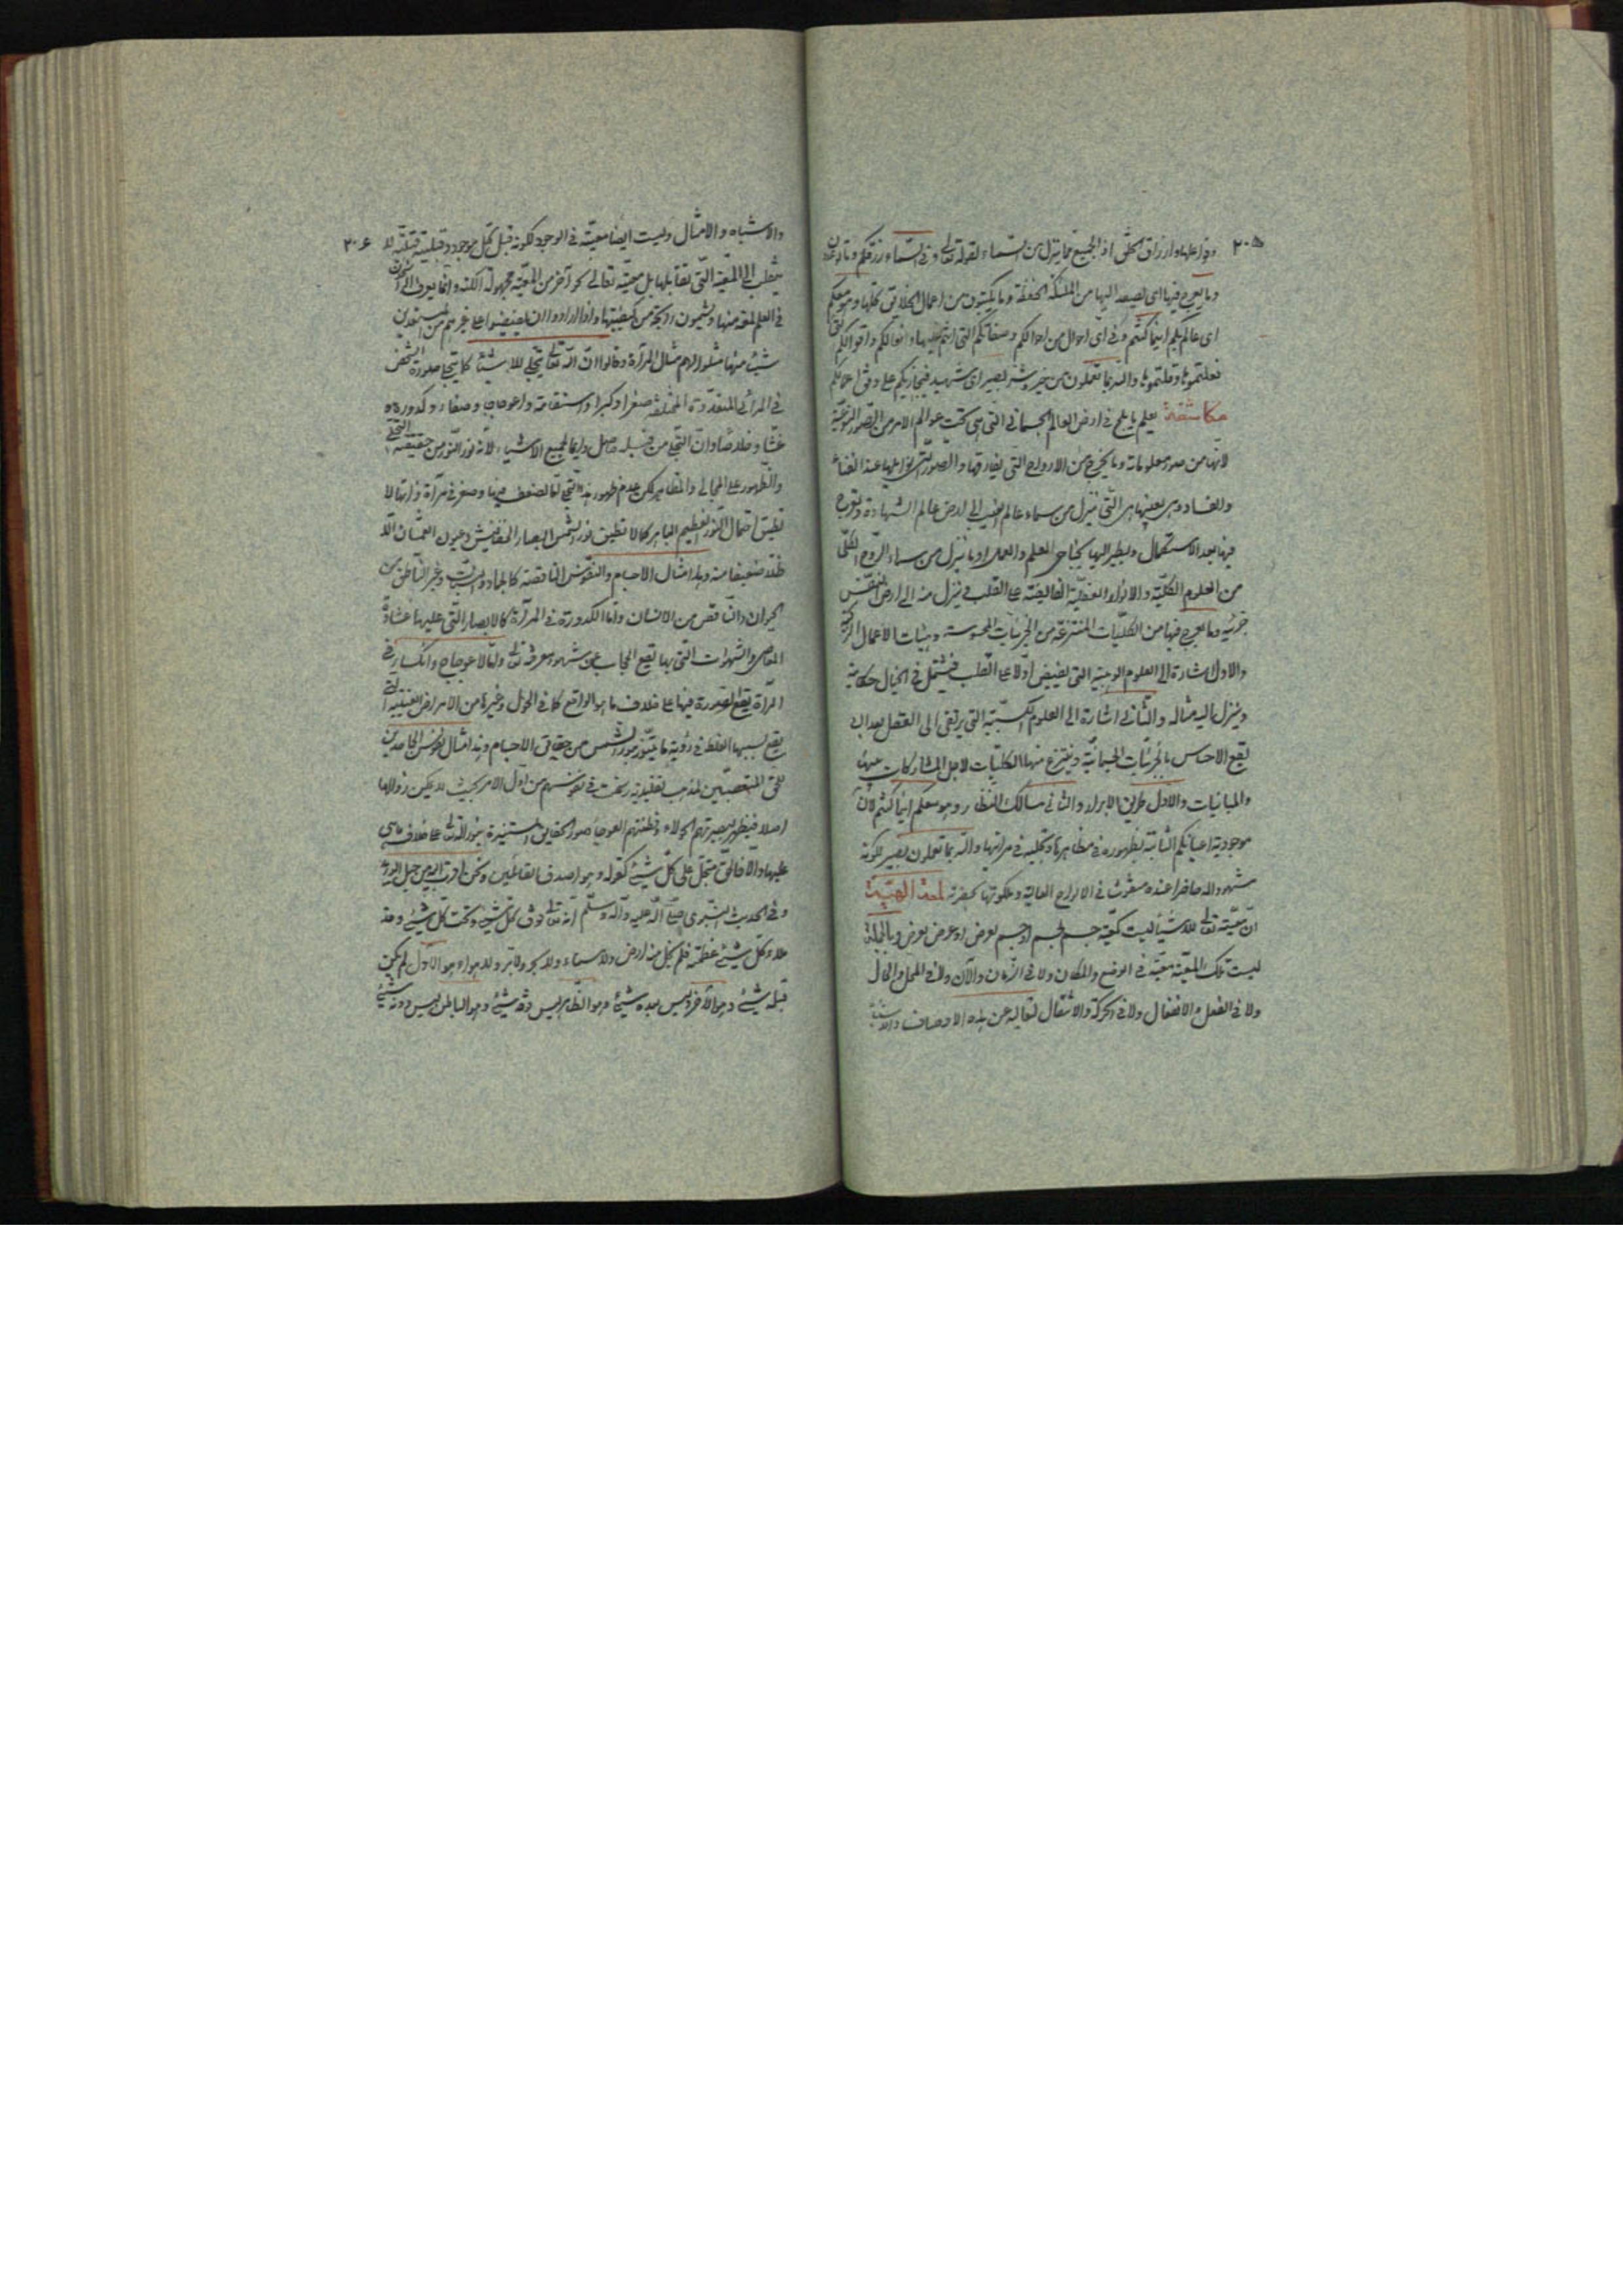 ٢٠٥
وما يعرج فيها اى يصعد اليها من الملئكة الحفظة وما يكتبون من اعمال الخلايق كلها وهو معكم
اى عالم بكم اينما كنتم وفى اى احوال من احوالكم وصفاتكم التى انتم عليها وافعالكم واقوالكم التى
فعلتموها وقلتموها والله بما تعملون من خير وشر بصير اى شهيد فيجازيكم على وفق اعمالكم
مكاشفة يعلم ما يلج فى ارض العالم الجسمانى التى هى تحت عوالم الامر من الصور النوعية
لانها من صور معلوماته وما يخرج من الارواح التى يفارقها والصور التى يزايلها عند الفناء
والفساد وهى بعينها هى التى تنزل من سماء عالم الغيب الى ارض عالم الشهادة وتعرج
فيها بعد الاستكمال ويطير اليها بجناحى العلم والعمل او ما ينزل من سماء الروح الكلى
من العلوم الكلية والانوار العقلية الفائضة على القلب فينزل منه الى ارض النفس
جزئية وما يعرج فيها من الكليات المنتزعة من الجزئيات المحسوسة وهيئات الاعمال الزكية
والاول اشارة الى العلوم الوهبية التى يفيض اولا على القلب فيتمثل فى الخيال حكايته
وينزل اليه مثاله والثانى اشارة الى العلوم الكسبية التى يرتقى الى العقل بعد ان
يقع الاحساس بالجزئيات الجسمانية وينتزع منها الكليات لاجل المشاركات بينها
والمباينات والاول طريق الابرار والثانى مسالك النظار وهو معكم اينما كنتم لان
موجودية اعيانكم الثابتة بظهوره فى مظاهرها وتجليه فى مراتبها والله بما تعملون بصير لكونه
مشهودا له حاضرا عنده منقوشا فى الالواح العالية وملكوتها بحضرته لمعة الهية
ان معيته تعالى للاشياء ليست كمعية جسم لجسم او جسم لعرض او عرض لعرض وبالجملة
ليست تلك المعية معية فى الوضع والمكان ولا فى الزمان والآن ولا فى المحل والحال
ولا فى الفعل والانفعال ولا فى الحركة والانتقال لتعاليه عن هذه الاوصاف والاشباه
٢٠٦
والاشباه والامثال وليست ايضا معية فى الوجود لكونه قبل كل موجود قبلية لا
ينقلب الى المعية التى تقابلها بل معيته تعالى نحو آخر من المعية مجهولة الكنه وانما يعرف الراسخون
فى العلم لمعة منها ويشمون رائحة من كيفيتها واذا ارادوا ان يفيضوا على غيرهم من المستعدين
شيئا منها مثلوا لهم مثال المرآة وقالوا ان الله تعالى يتجلى للاشياء كما يتجلى صورة الشخص
فى المرائى المتعددة المختلفة صغرا وكبرا واستقامة واعوجاجا وصفاء وكدورة
غشا وخلاصا وان التجلى من قبله حاصل دايما لجميع الاشياء لانه نور النور من حقيقته التجلى
والظهور على المجالى والمظاهر لكن عدم ظهور هذا التجلى اما لضعف فيها وصغر فى مرآة ذاتها لا
تطيق احتمال النور العظيم الباهر كما لا تطيق نور الشمس ابصار الخفافيش وعيون العمشان الا
ظلا ضعيفا منه وهذا مثال الاجسام والنفوس الناقصة كالجماد والنبات وغير الناطق من
الحيوان والناقص من الانسان واما الكدورة فى المرآة كالابصار التى عليها غشاوة
المعاصى والشهوات التى بها تقع الحجاب عن شهود معرفته تعالى واما لاعوجاج وانكسار فى
المرآة يقع الصورة فيها على خلاف ما هو الواقع كما فى الحول وغيرها من الامراض العينية التى
يقع بسببها الغلط فى رؤية ما يتنور بنور الشمس من حقايق الاجسام وهذا مثال نفوس الجاحدين
للحق المتعصبين لمذهب تقليدية رسخت فى نفوسهم من اول الامر بحيث لا يمكن زوالها
اصلا فيظهر لبصيرتهم الحولاء وفطنتهم العوجاء صور الحقايق المستنيرة بنور الله تعالى على خلاف ما هى
عليها والا فالحق متجل على كل شيئ كقوله وهو اصدق القائلين ونحن اقرب اليه من حبل الوريد
وفى الحديث النبوى صلى الله عليه وآله وسلم انه تعالى فوق كل شيئ وتحت كل شيئ وقد
ملاء كل شيئ عظمته فلم يخل منه ارض ولا سماء ولا بحر ولا بر ولا هواء هو الاول لم يكن
قبله شيئ وهو الآخر ليس بعده شيئ وهو الظاهر ليس فوقه شيئ وهو الباطن ليس دونه شيئ